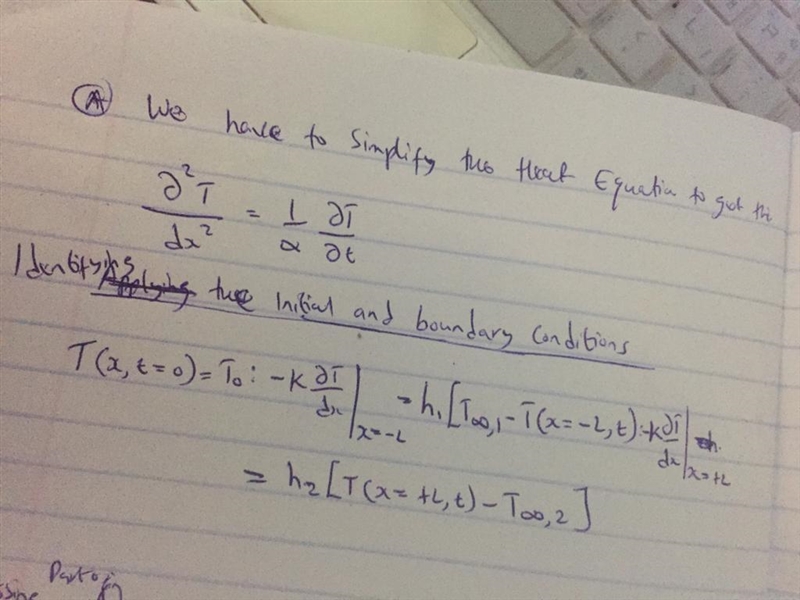 Ⓐ We have to simplify the Heat Equation to get the
∂²T/dx² = 1/α ∂T/∂t
Identifying the Initial and boundary conditions
T(x, t=0) = T₀ : -k ∂T/dx |x=-L = h₁ [T∞,1 - T(x=-L, t) : -k ∂T/dx |x=+L
= h₂ [T(x=+L, t) - T∞,2]